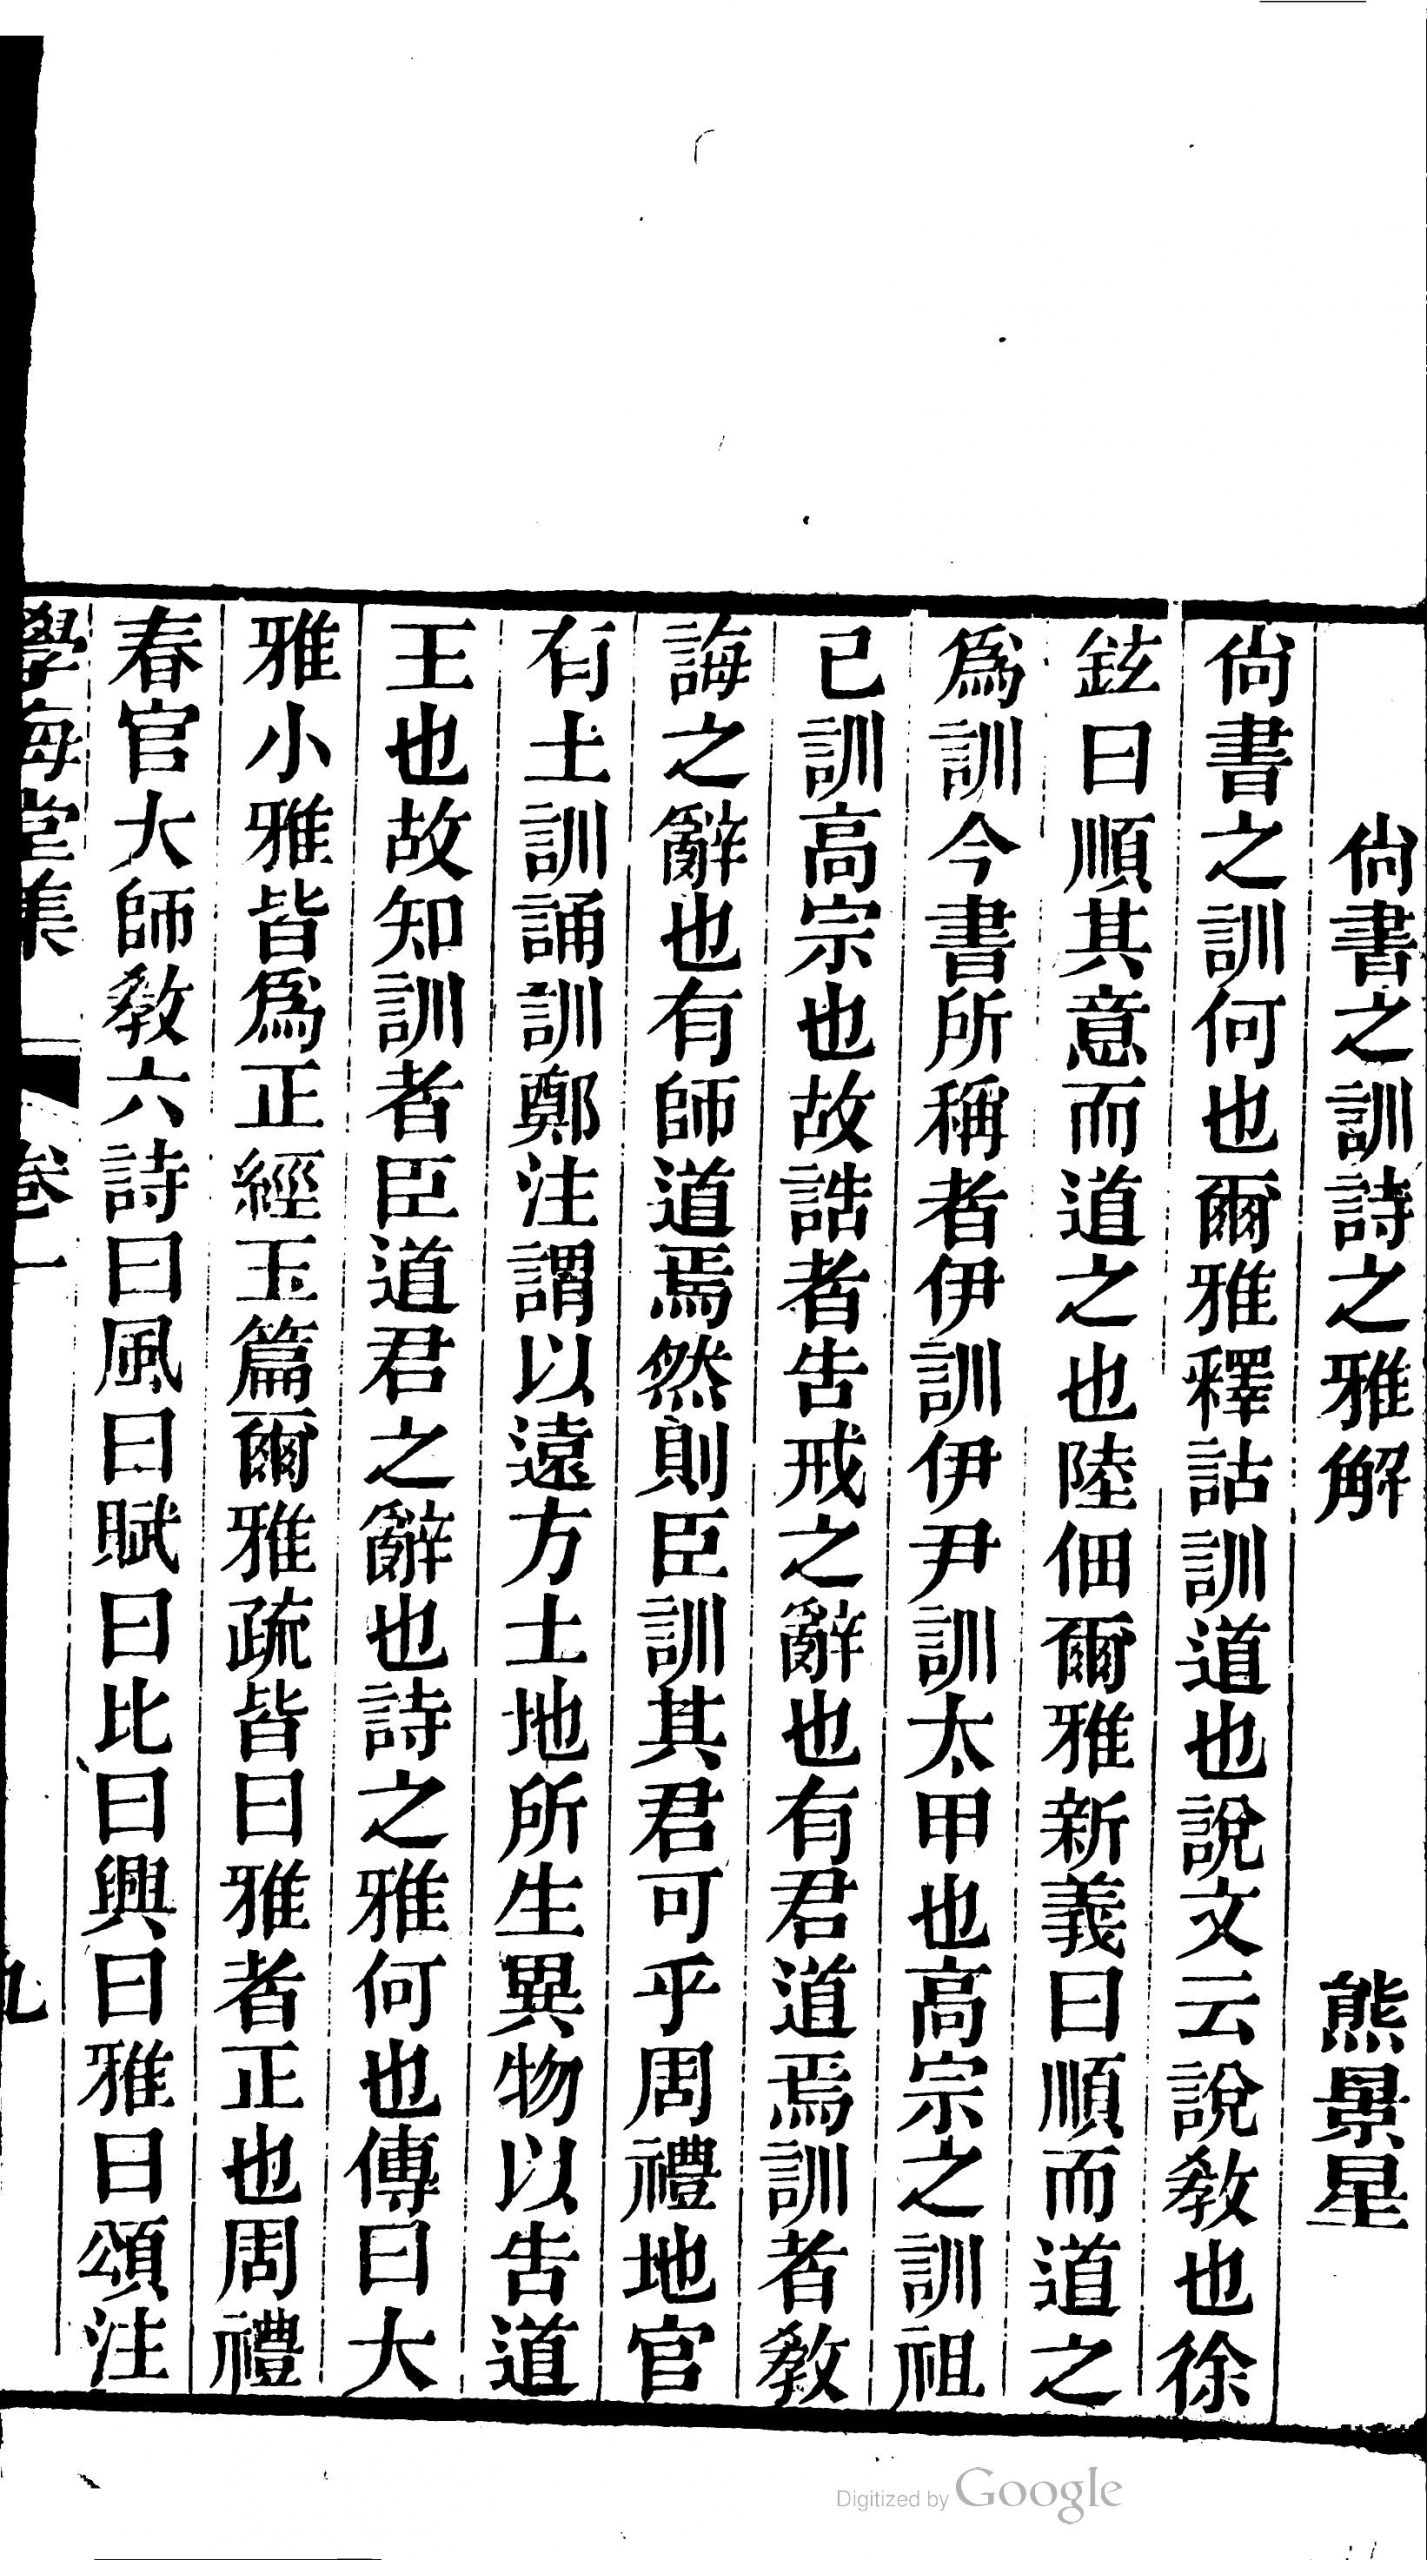 尙書之訓詩之雅解 熊景星
尙書之訓何也爾雅釋詁訓道也說文云說敎也徐
鉉曰順其意而道之也陸佃爾雅新義曰順而道之
爲訓今書所稱者伊訓伊尹訓太甲也高宗之訓祖
已訓高宗也故誥者告戒之辭也有君道焉訓者敎
誨之辭也有師道焉然則臣訓其君可乎周禮地官
有土訓誦訓鄭注謂以遠方土地所生異物以告道
王也故知訓者臣道君之辭也詩之雅何也傳曰大
雅小雅皆爲正經玉篇爾雅疏皆曰雅者正也周禮
春官大師敎六詩曰風曰賦曰比曰興曰雅曰頌注
學海堂集 卷一 九
Digitized by Google